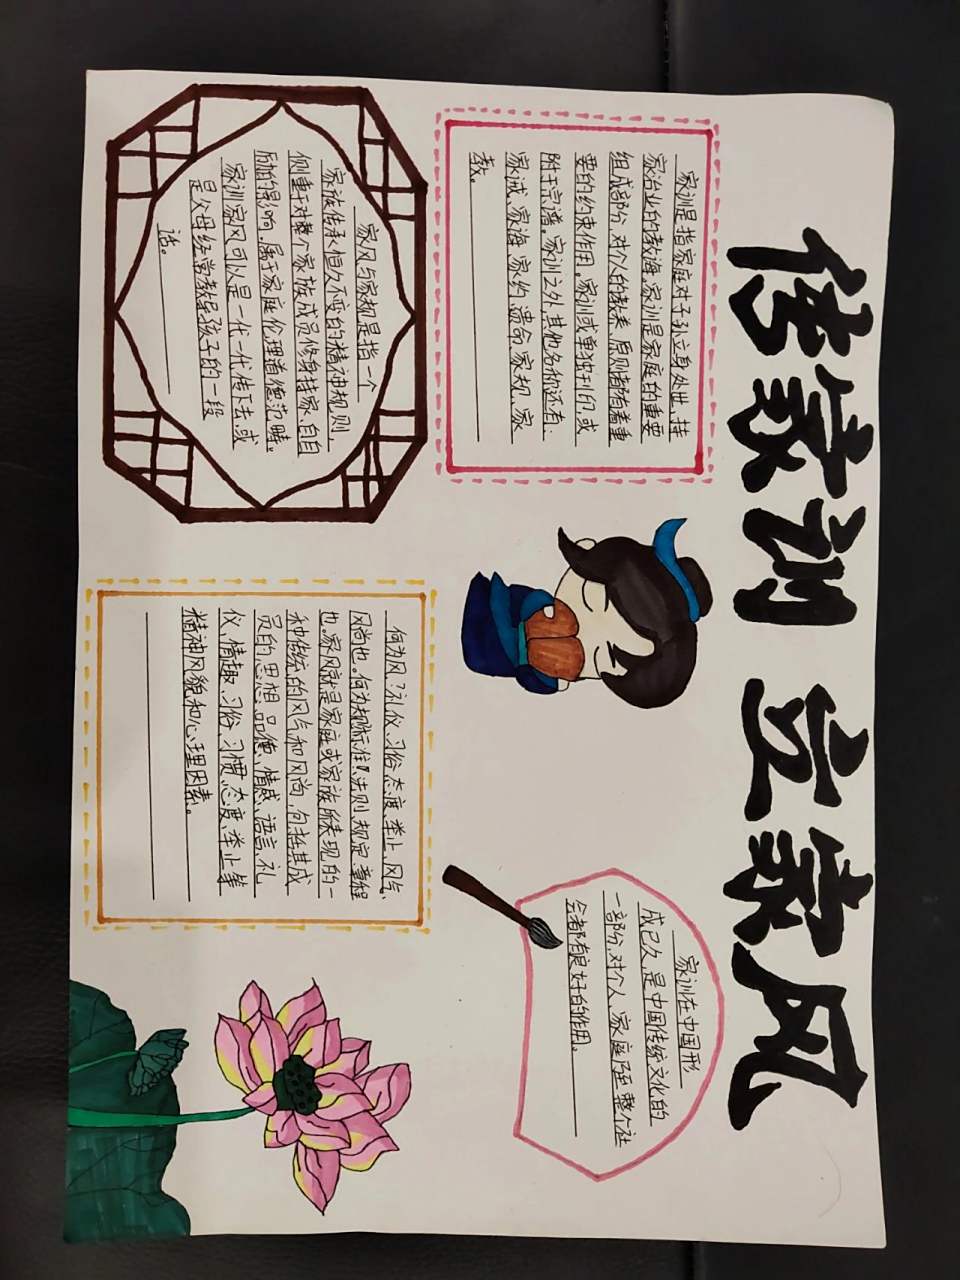 传家训 立家风
家训是指家庭对子孙立身处世、持
家治业的教诲,家训是家庭的重要
组成部分,对个人的教养、原则都有着重
要的约束作用。家训或单独刊印,或
附于宗谱。家训之外,其他名称还有:
家诫、家诲、家约、遗命、家规、家
教。
家风与家规是指一个
家族传承恒久不变的精神规则
侧重于对整个家族成员修身持家,自
励的影响,属于家庭伦理道德范畴。
家训家风可以是一代一代传下去,或
是父母经常教导孩子的一段
话。
家训在中国形
成已久,是中国传统文化的
一部分,对个人、家庭乃至整个社
会都有良好的作用。
何为风?礼仪、习俗、态度、举止、风气、
风尚也。何为规?标准、法则、规定、章程
也。家风就是家庭或家族所表现的一
种传统的风气和风尚,包括其成
员的思想、品德、情感、语言、礼
仪、情趣、习俗、习惯、态度、举止等
精神风貌和心理因素。